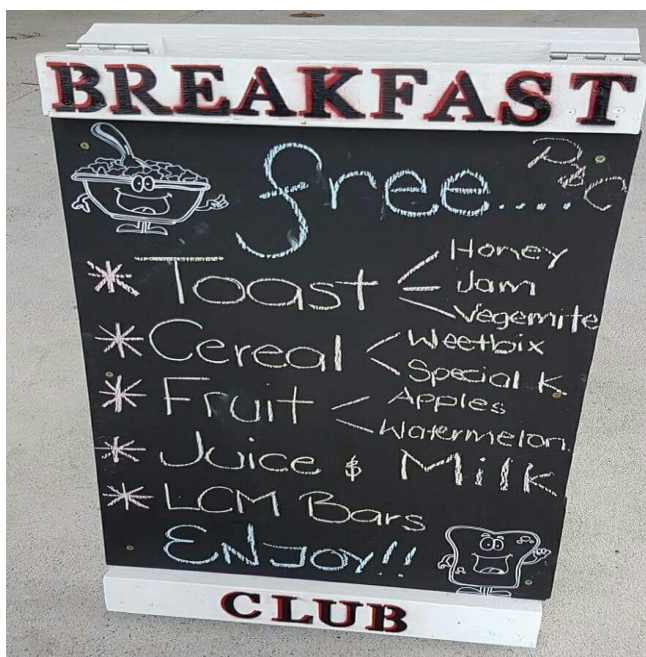 BREAKFAST
free.... P&C
* Toast < Honey
Jam
Vegemite
* Cereal < Weetbix
Special K.
* Fruit < Apples
Watermelon.
* Juice & Milk
* LCM Bars
ENJOY!!
CLUB